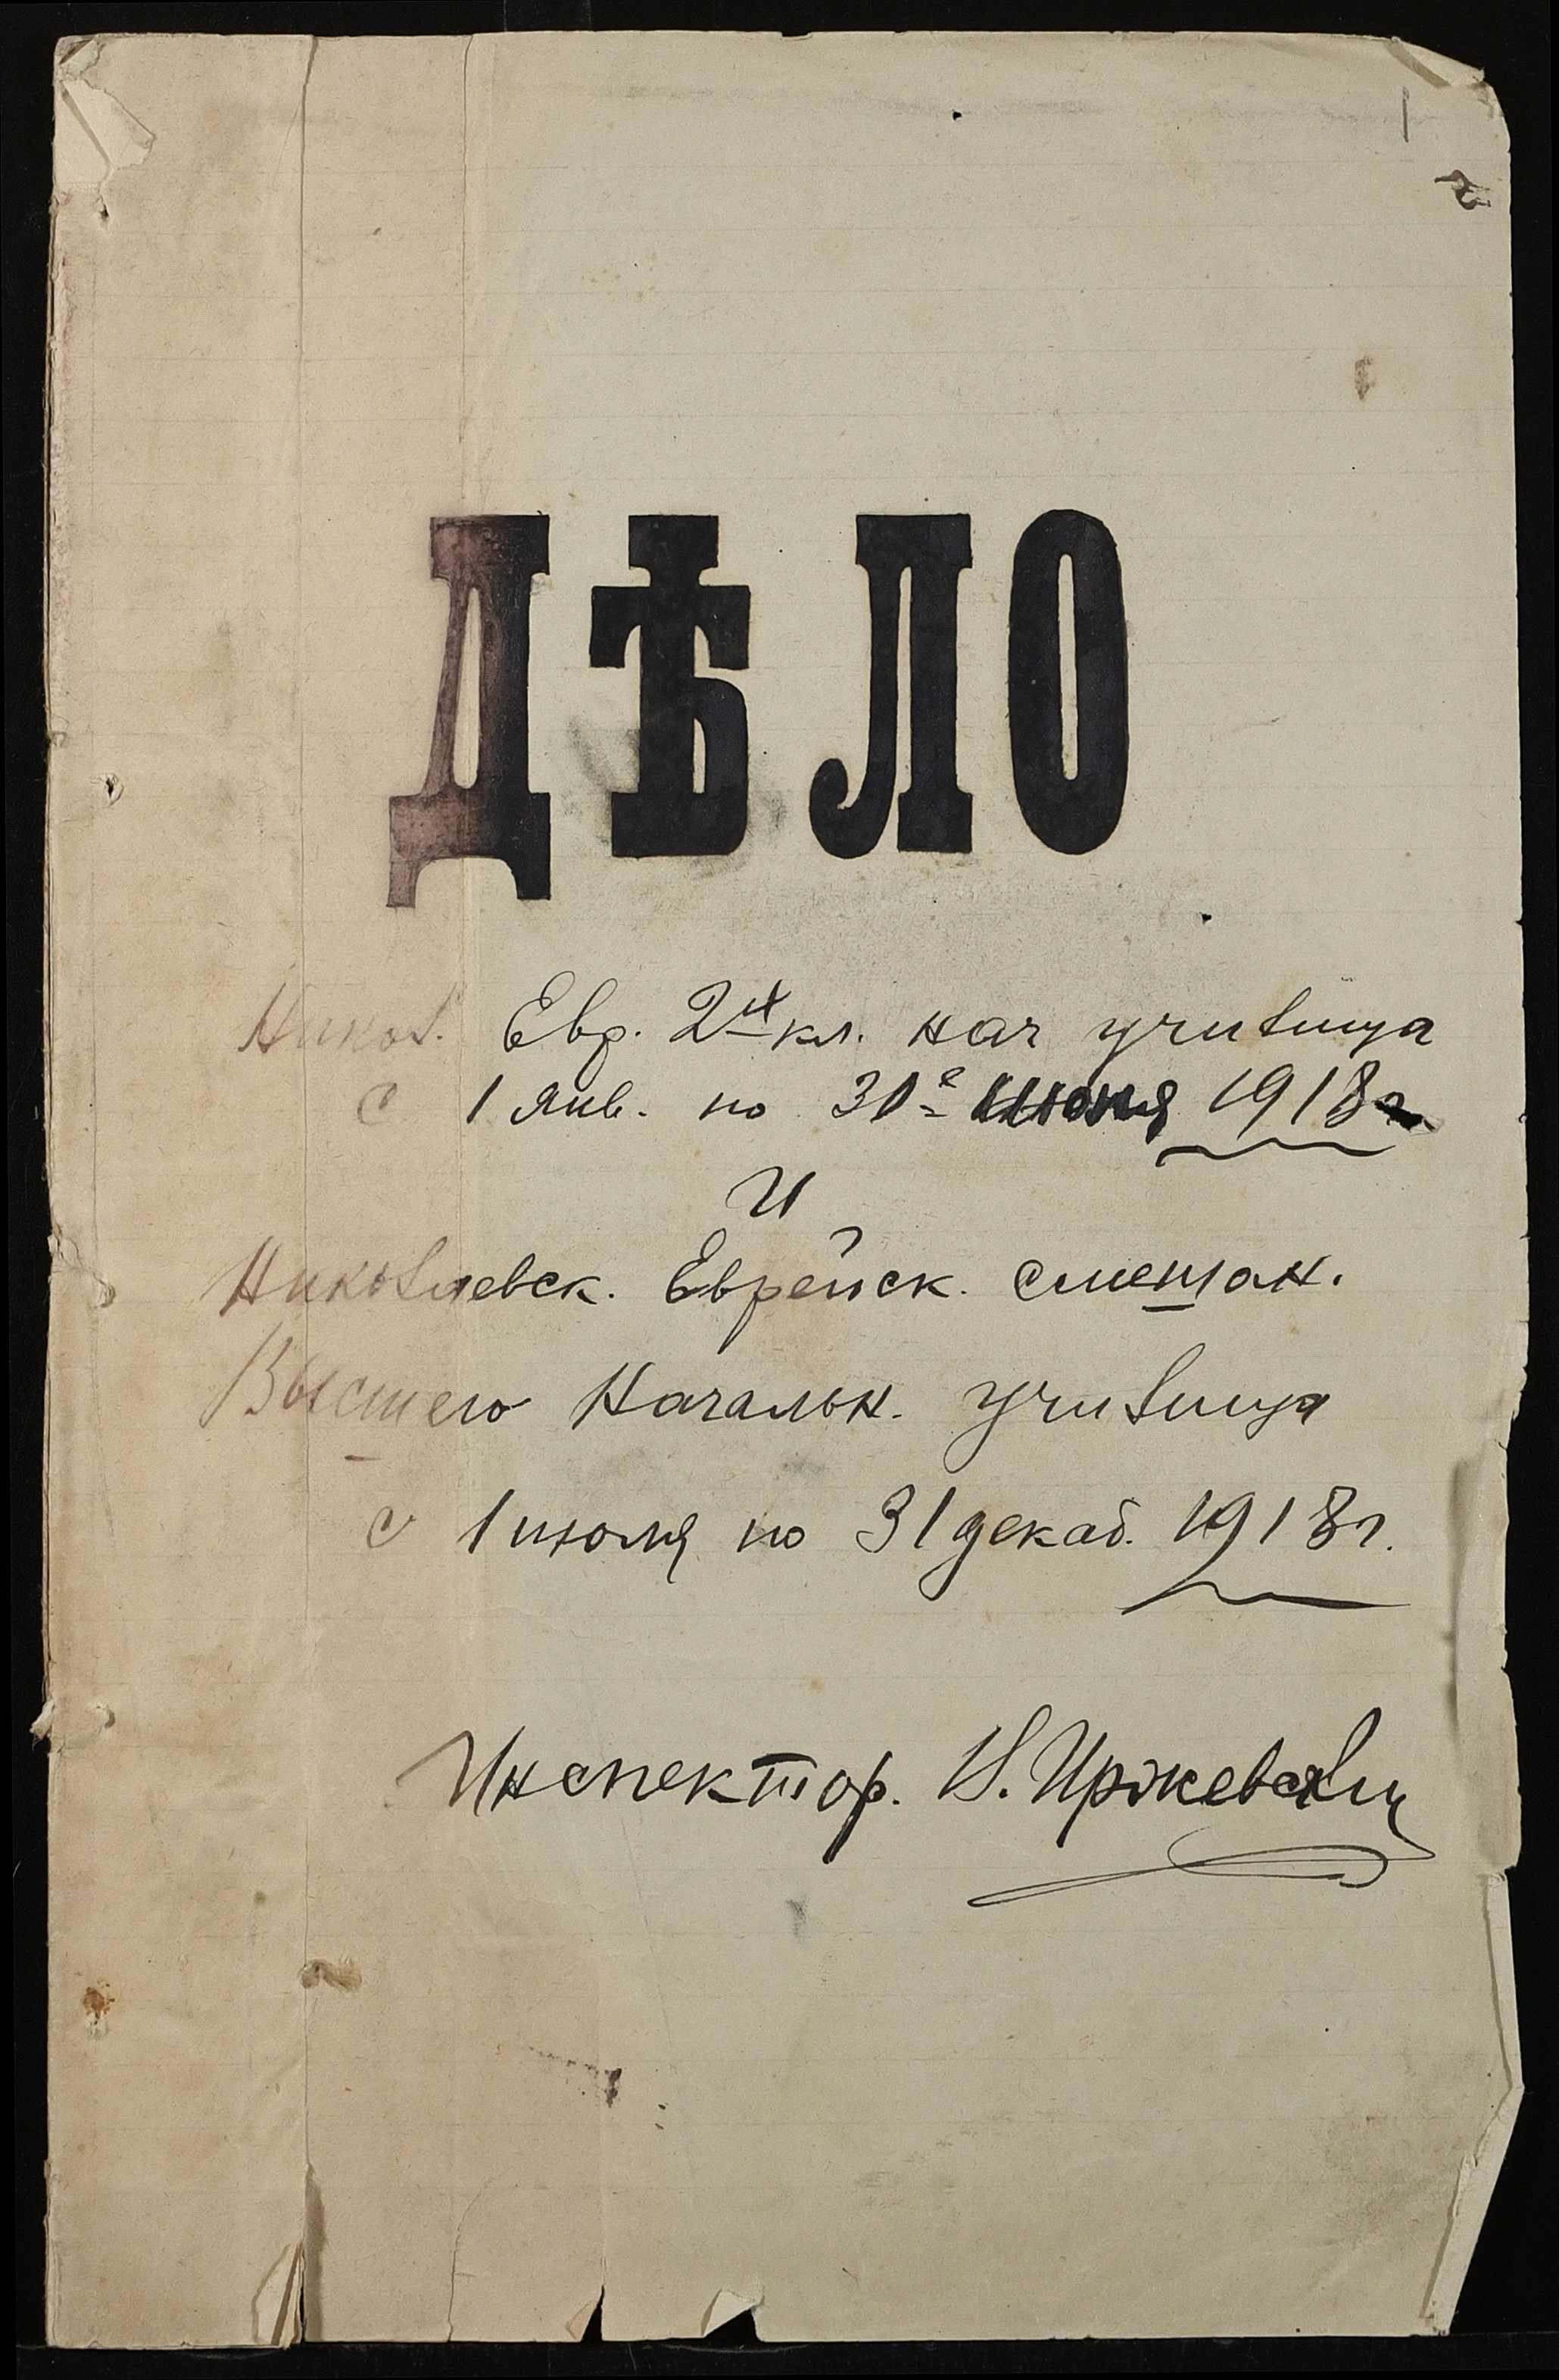 1
2
ДѢЛО
Никол. Евр. 2х кл. нач училища
с 1 янв. по 30е июня 1918г.
и
Николаевск. Еврейск. смешан.
Высшего Начальн. училища
с 1 июля по 31 декаб. 1918г.
Инспектор.